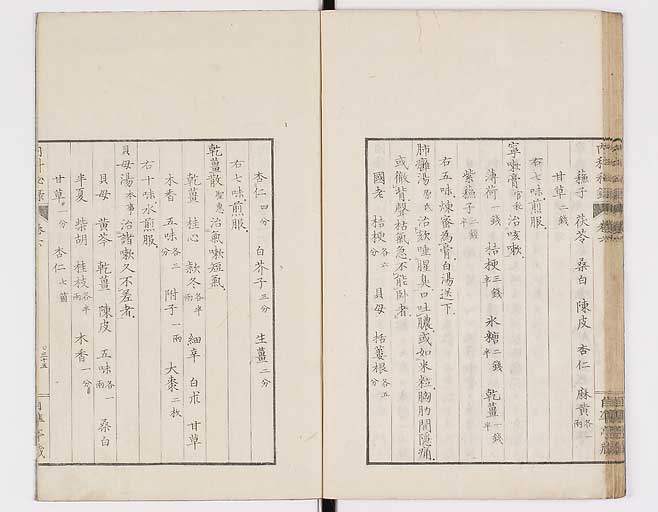 蘇子 茯苓 桑白 陳皮 杏仁 麻黄各一兩
甘草二錢
右七味煎服
寧嗽膏 治咳嗽
薄荷一錢 桔梗三錢半 氷糖二錢半 乾薑一錢半
紫蘇子二錢
右五味煉蜜為膏白湯送下
肺癰湯 治欬唾腥臭口吐膿或如米粒胸肋間隱痛
或徹背聲枯氣急不能卧者
國老 桔梗各六分 貝母 栝蔞根各五分
杏仁四分 白芥子三分 生薑二分
右七味煎服
乾薑散聖惠 治氣嗽短氣
乾薑 桂心 欵冬各半兩 細辛 白朮 甘草
木香 五味各二分 附子一兩 大棗二枚
右十味水煎服
貝母湯本事 治諸嗽久不差者
貝母 黄芩 乾薑 陳皮 五味各一兩 桑白
半夏 柴胡 桂枝各半兩 木香一分
甘草一分 杏仁七箇